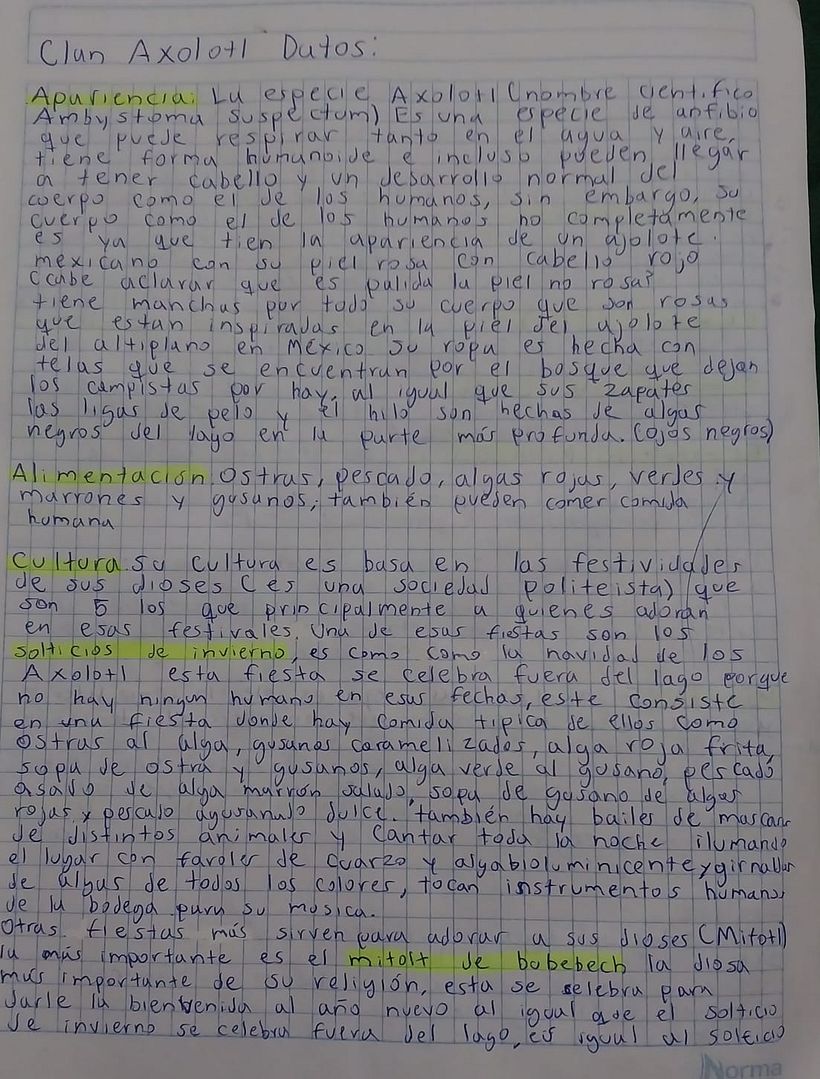 Clan Axolotl Datos:
Apariencia: La especie Axolotl (nombre cientifico
Ambystoma suspectum) Es una especie de anfibio
que puede respirar tanto en el agua y aire,
tiene forma humanoide e incluso pueden llegar
a tener cabello y un desarrollo normal del
cuerpo como el de los humanos, sin embargo, su
cuerpo como el de los humanos no completamente
es ya que tien la apariencia de un ajolote
mexicano con su piel rosa con cabello rojo
(cabe aclarar que es palida la piel no rosa)
tiene manchas por todo su cuerpo que son rosas
que estan inspiradas en la piel del ajolote
del altiplano en México su ropa es hecha con
telas que se encuentran por el bosque que dejan
los campistas por hay, al igual que sus zapates
las ligas de pelo y el hilo son hechas de algas
negros del lago en la parte más profunda. (ojos negros)
Alimentación Ostras, pescado, algas rojas, verdes y
marrones y gusanos, también pueden comer comida
humana
Cultura su cultura es basa en las festividades
de sus dioses (es una sociedad politeista) que
son 5 los que principalmente a quienes adoran
en esas festivales. Una de esas fiestas son los
solticios de invierno, es como como la navidad de los
Axolotl esta fiesta se celebra fuera del lago porque
no hay ningun humano en esas fechas, este consiste
en una fiesta donde hay comida tipica de ellos como
ostras al alga, gusanos caramelizados, alga roja frita,
sopa de ostra y gusanos, alga verde al gusano, pescado
asado de alga marrón salado, sopa de gusano de algas
rojas y pescado agusanado dulce. también hay bailes de mascaras
de distintos animales y cantar toda la noche ilumando
el lugar con faroles de cuarzo y alga bioluminicente y girnaldas
de algas de todos los colores, tocan instrumentos humanos
de la bodega para su musica.
Otras fiestas más sirven para adorar a sus dioses (Mitotl)
la más importante es el mitolt de bubebech la diosa
más importante de su religión, esta se selebra para
darle la bienvenida al año nuevo al igual que el solticio
de invierno se celebra fuera del lago, es igual al solticio
Norma